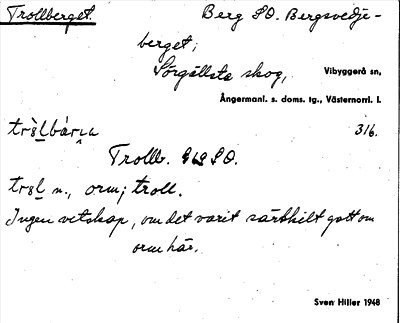 Trollberget. Berg SO. Bergsvedje-
berget,
Sörgällsta skog, Vibyggerå sn,
Ångermanl. s. doms. tg., Västernorrl. l.
316.
Trollb. SO.
n., orm; troll.
Ingen vetskap, om det varit särskilt gott om
orm här.
Sven Hiller 1948